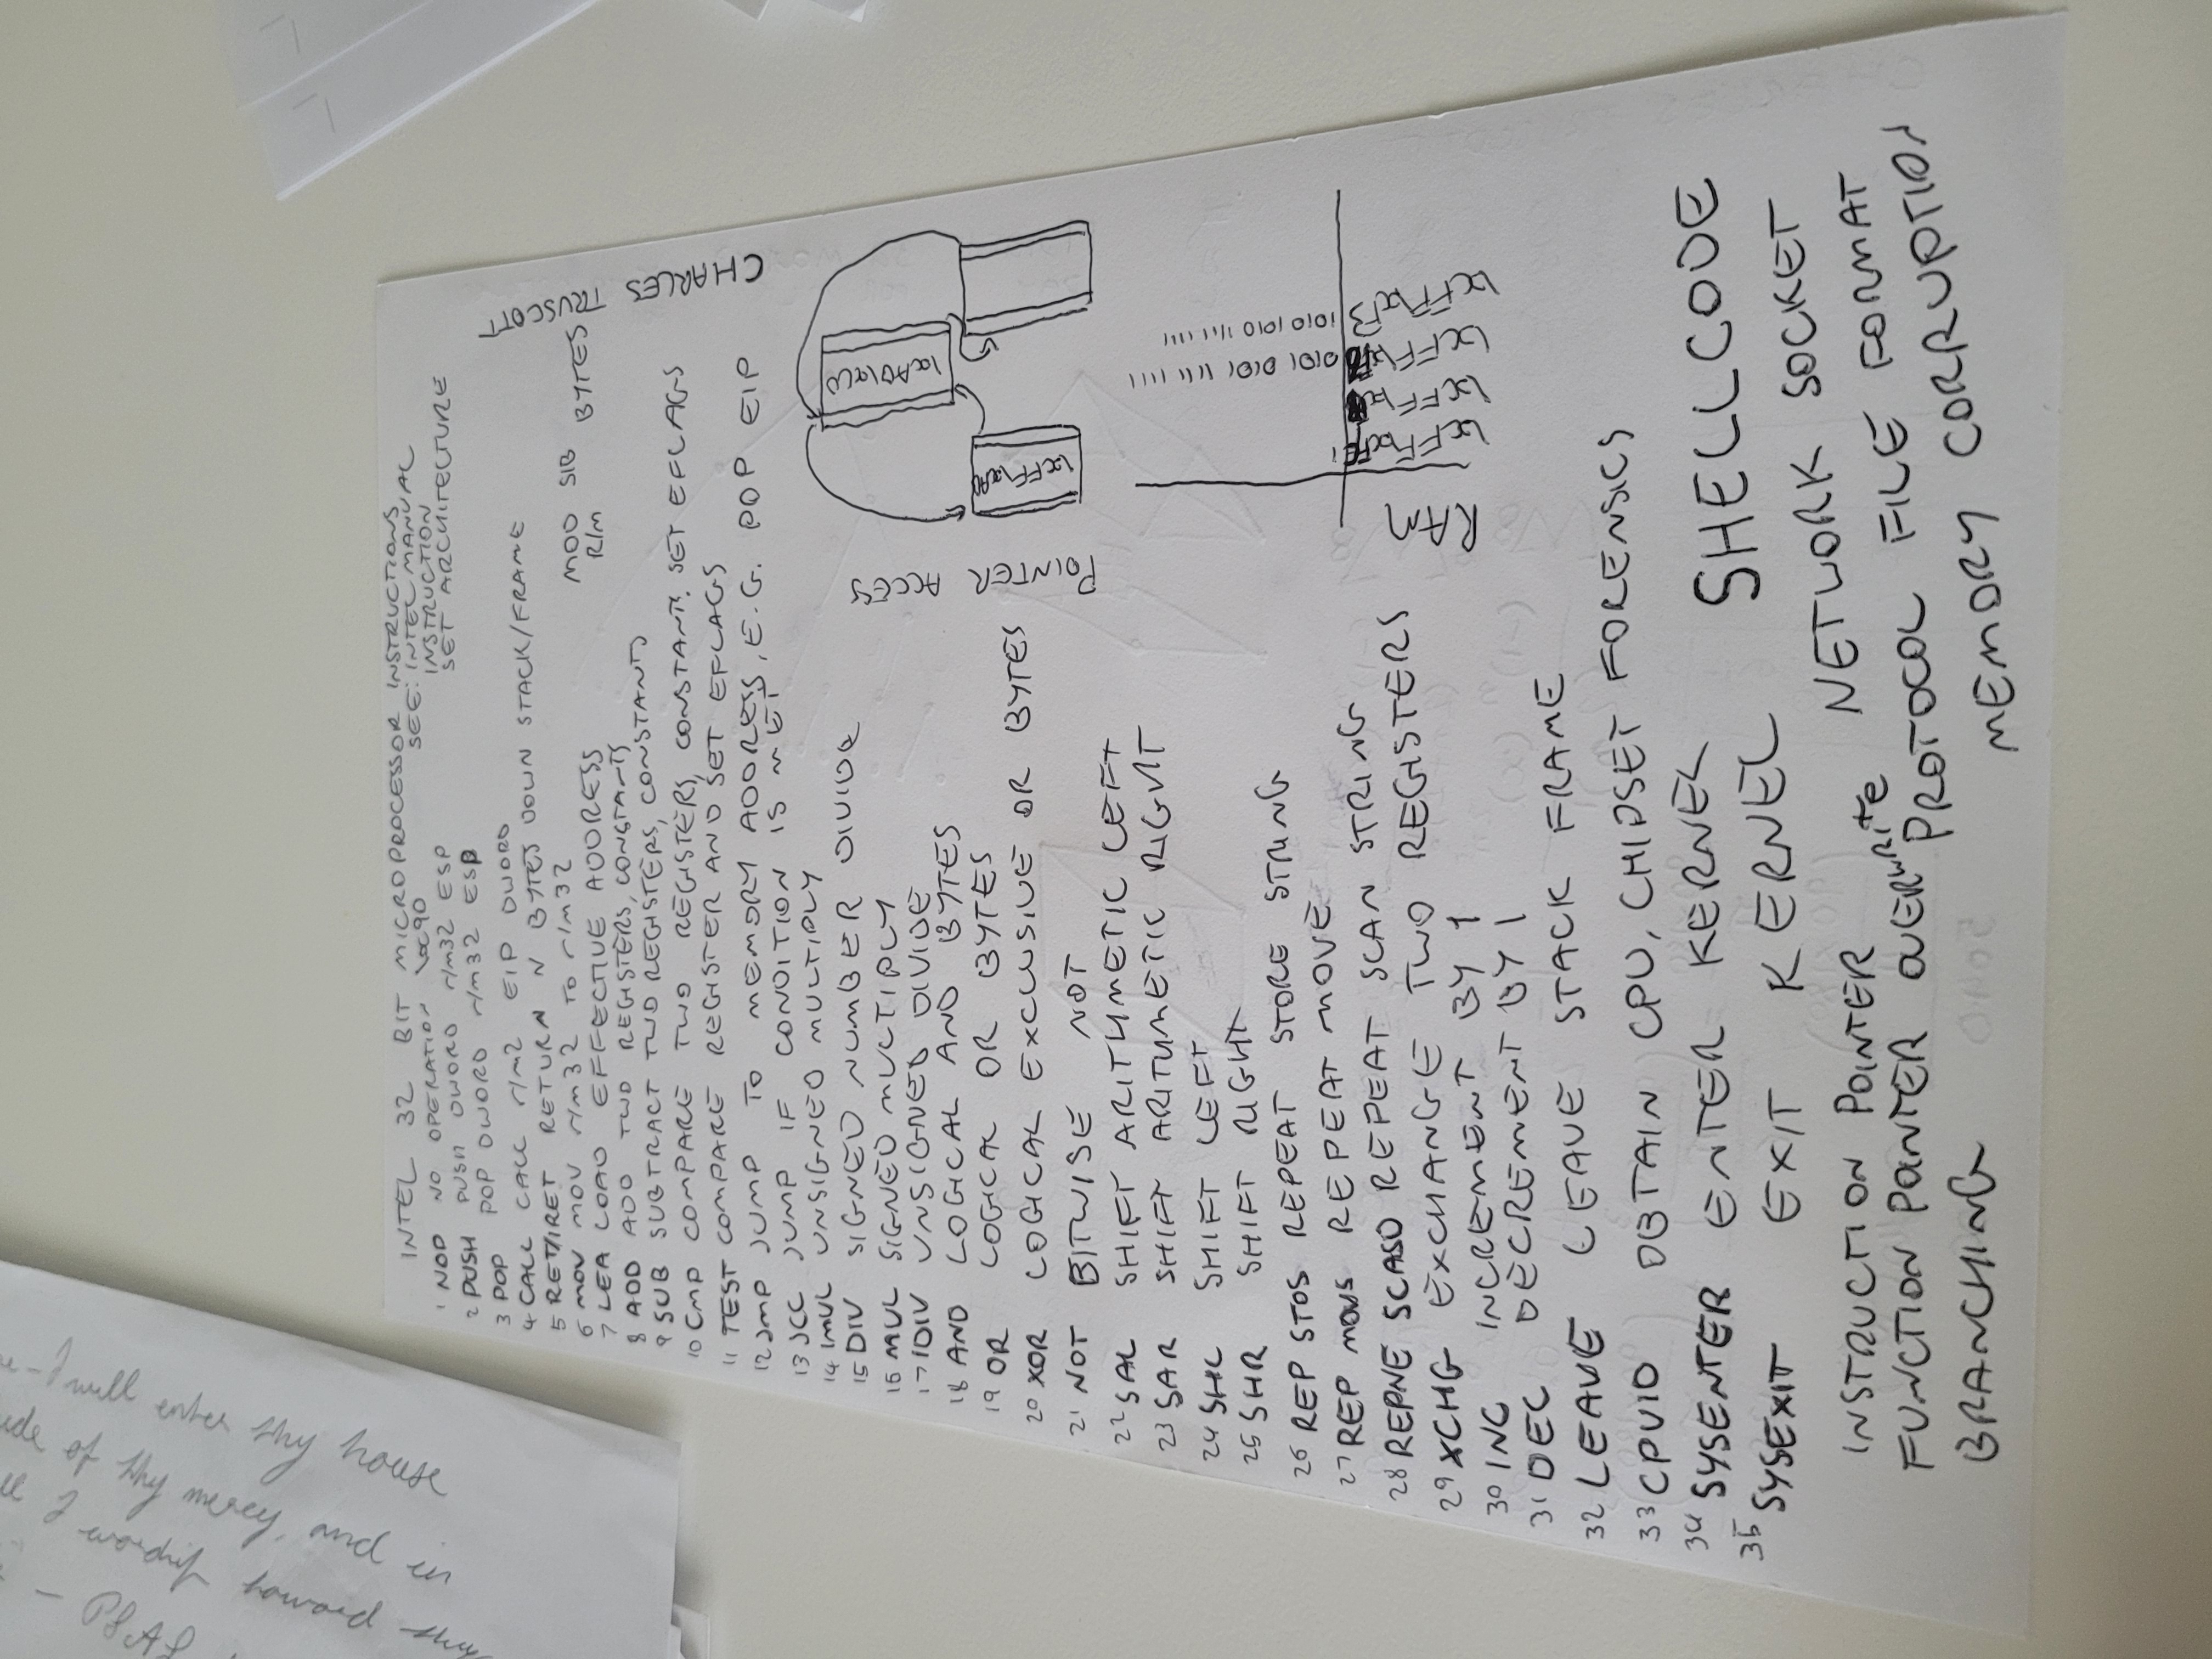 INTEL 32 BIT MICROPROCESSOR INSTRUCTIONS
SEE: INTEL MANUAL
INSTRUCTION
SET ARCHITECTURE
1 NOP NO OPERATION \x90
2 PUSH PUSH DWORD r/m32 ESP
3 POP POP DWORD r/m32 ESP
4 CALL CALL r/m2 EIP DWORD
5 RET/IRET RETURN N BYTES DOWN STACK/FRAME
6 MOV MOV r/m32 TO r/m32
7 LEA LOAD EFFECTIVE ADDRESS
MOD SIB BYTES
R/M
8 ADD ADD TWO REGISTERS, CONSTANTS
9 SUB SUBTRACT TWO REGISTERS, CONSTANTS
10 CMP COMPARE TWO REGISTERS, CONSTANTS. SET EFLAGS
11 TEST COMPARE REGISTER AND SET EFLAGS
12 JMP JUMP TO MEMORY ADDRESS, E.G. POP EIP
13 JCC JUMP IF CONDITION IS MET
14 IMUL UNSIGNED MULTIPLY
15 DIV SIGNED NUMBER DIVIDE
16 MUL SIGNED MULTIPLY
17 IDIV UNSIGNED DIVIDE
18 AND LOGICAL AND BYTES
19 OR LOGICAL OR BYTES
20 XOR LOGICAL EXCLUSIVE OR BYTES
21 NOT BITWISE NOT
22 SAL SHIFT ARITHMETIC LEFT
23 SAR SHIFT ARITHMETIC RIGHT
24 SHL SHIFT LEFT
25 SHR SHIFT RIGHT
26 REP STOS REPEAT STORE STRING
27 REP MOVS REPEAT MOVE
28 REPNE SCASD REPEAT SCAN STRING
29 XCHG EXCHANGE TWO REGISTERS
30 INC INCREMENT BY 1
31 DEC DECREMENT BY 1
32 LEAVE LEAVE STACK FRAME
33 CPUID OBTAIN CPU, CHIPSET FORENSICS
34 SYSENTER ENTER KERNEL
35 SYSEXIT EXIT KERNEL
INSTRUCTION POINTER
FUNCTION POINTER OVERWRITE
BRANCHING
SHELLCODE
NETWORK SOCKET
PROTOCOL FILE FORMAT
MEMORY CORRUPTION
CHARLES TRUSCOTT
POINTER ACCESS
RAM
0101 0101 1111 1111
1010 1010 1111 1111
enter thy house
of thy mercy. and in
toward thy